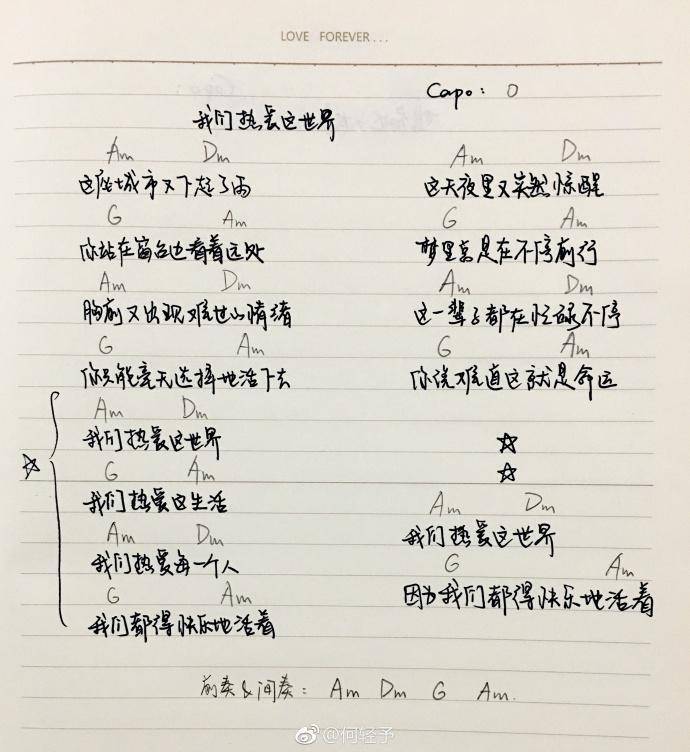 LOVE FOREVER...
Capo: 0
我们热爱这世界
Am Dm
这座城市又下起了雨
G Am
你站在窗台边看着远处
Am Dm
胸前又出现难过的情绪
G Am
你只能毫无选择地活下去
Am Dm
我们热爱这世界
G Am
我们热爱这生活
Am Dm
我们热爱每一个人
G Am
我们都得快乐地活着
Am Dm
这天夜里又突然惊醒
G Am
梦里总是在不停前行
Am Dm
这一辈子都在忙碌不停
G Am
你说难道这就是命运
☆
☆
Am Dm
我们热爱这世界
G Am
因为我们都得快乐地活着
前奏&间奏: Am Dm G Am.
@何轻予